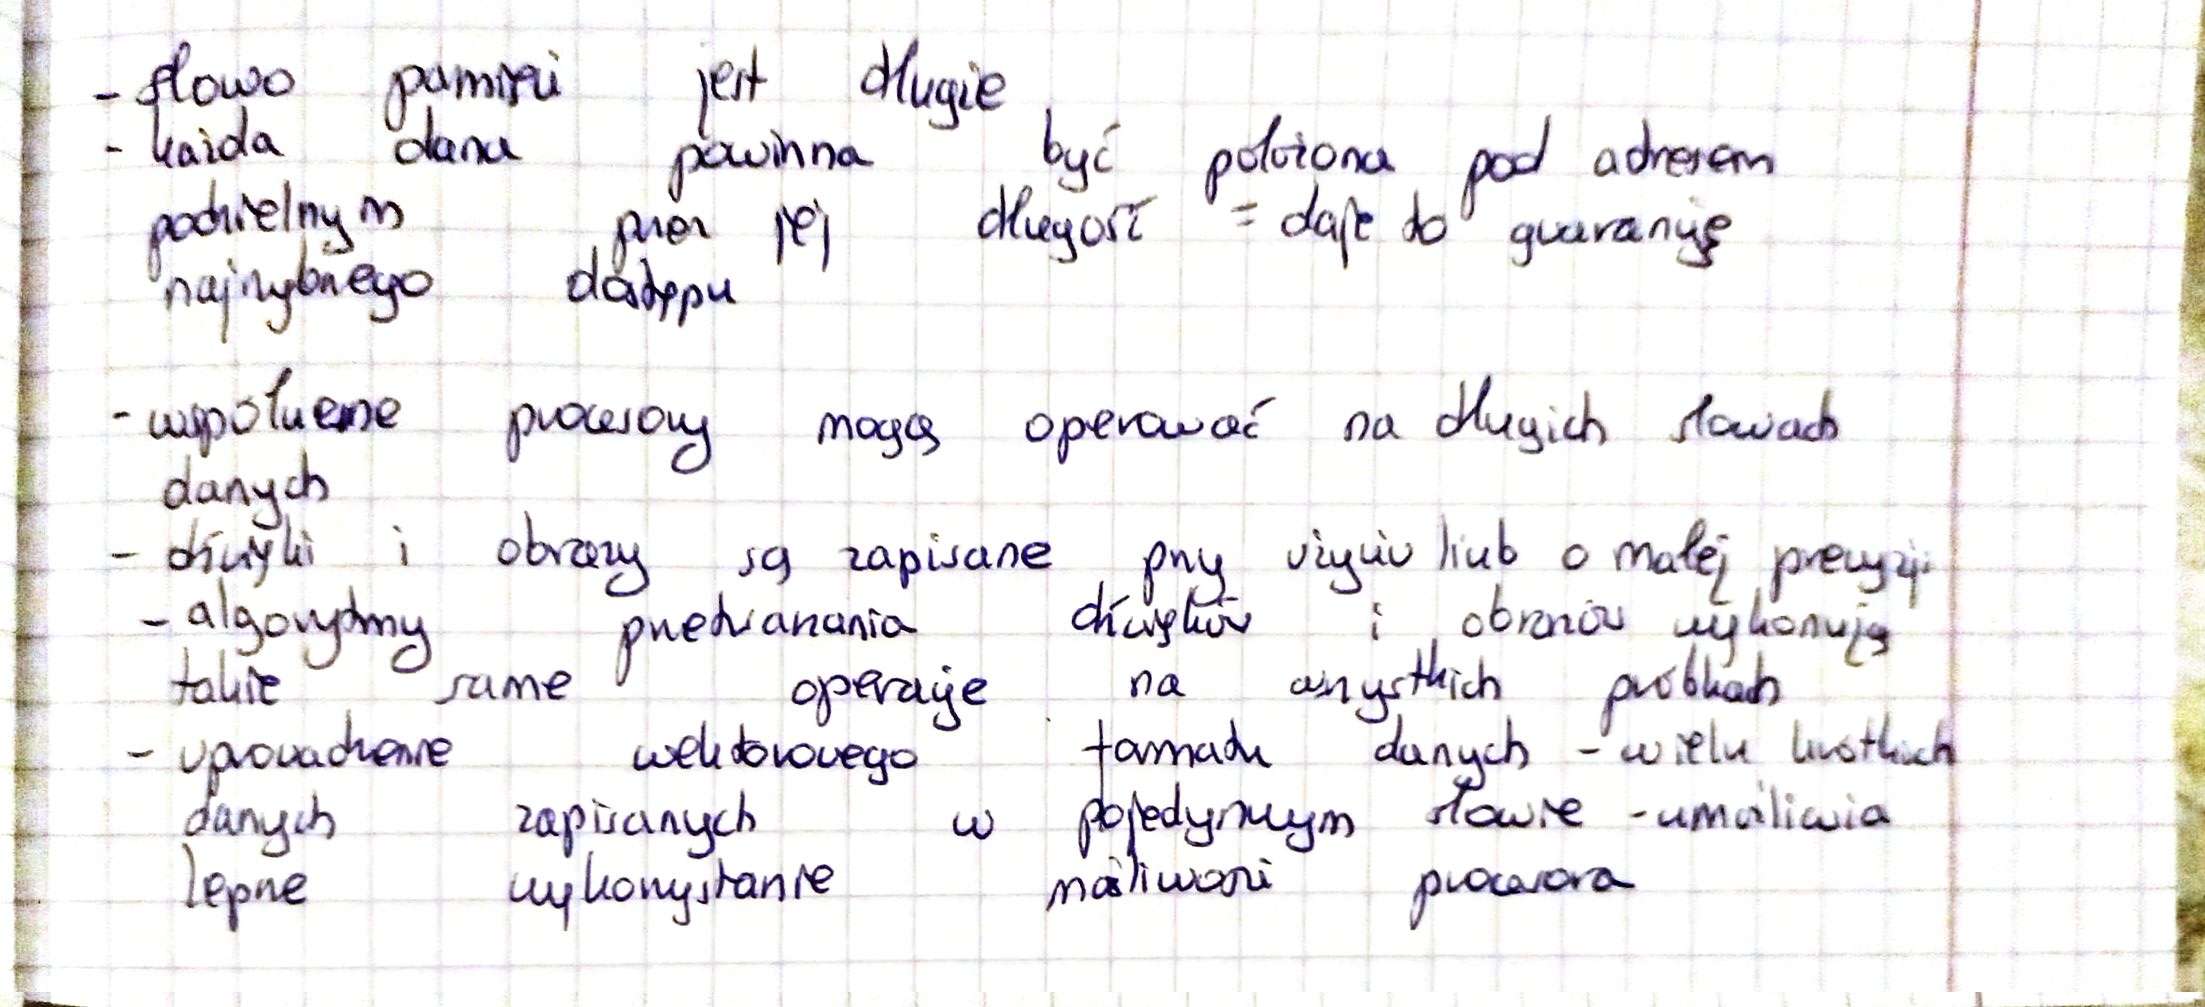 - słowo pamięci jest długie
- każda dana powinna być położona pod adresem
podzielnym przez jej długość = daje to gwarancję
najszybszego dostępu
- współczesne procesory mogą operować na długich słowach
danych
- dźwięki i obrazy są zapisane przy użyciu liczb o małej precyzji
- algorytmy przetwarzania dźwięków i obrazów wykonują
takie same operacje na wszystkich próbkach
- wprowadzenie wektorowego formatu danych - wielu krótkich
danych zapisanych w pojedynczym słowie - umożliwia
lepsze wykorzystanie możliwości procesora